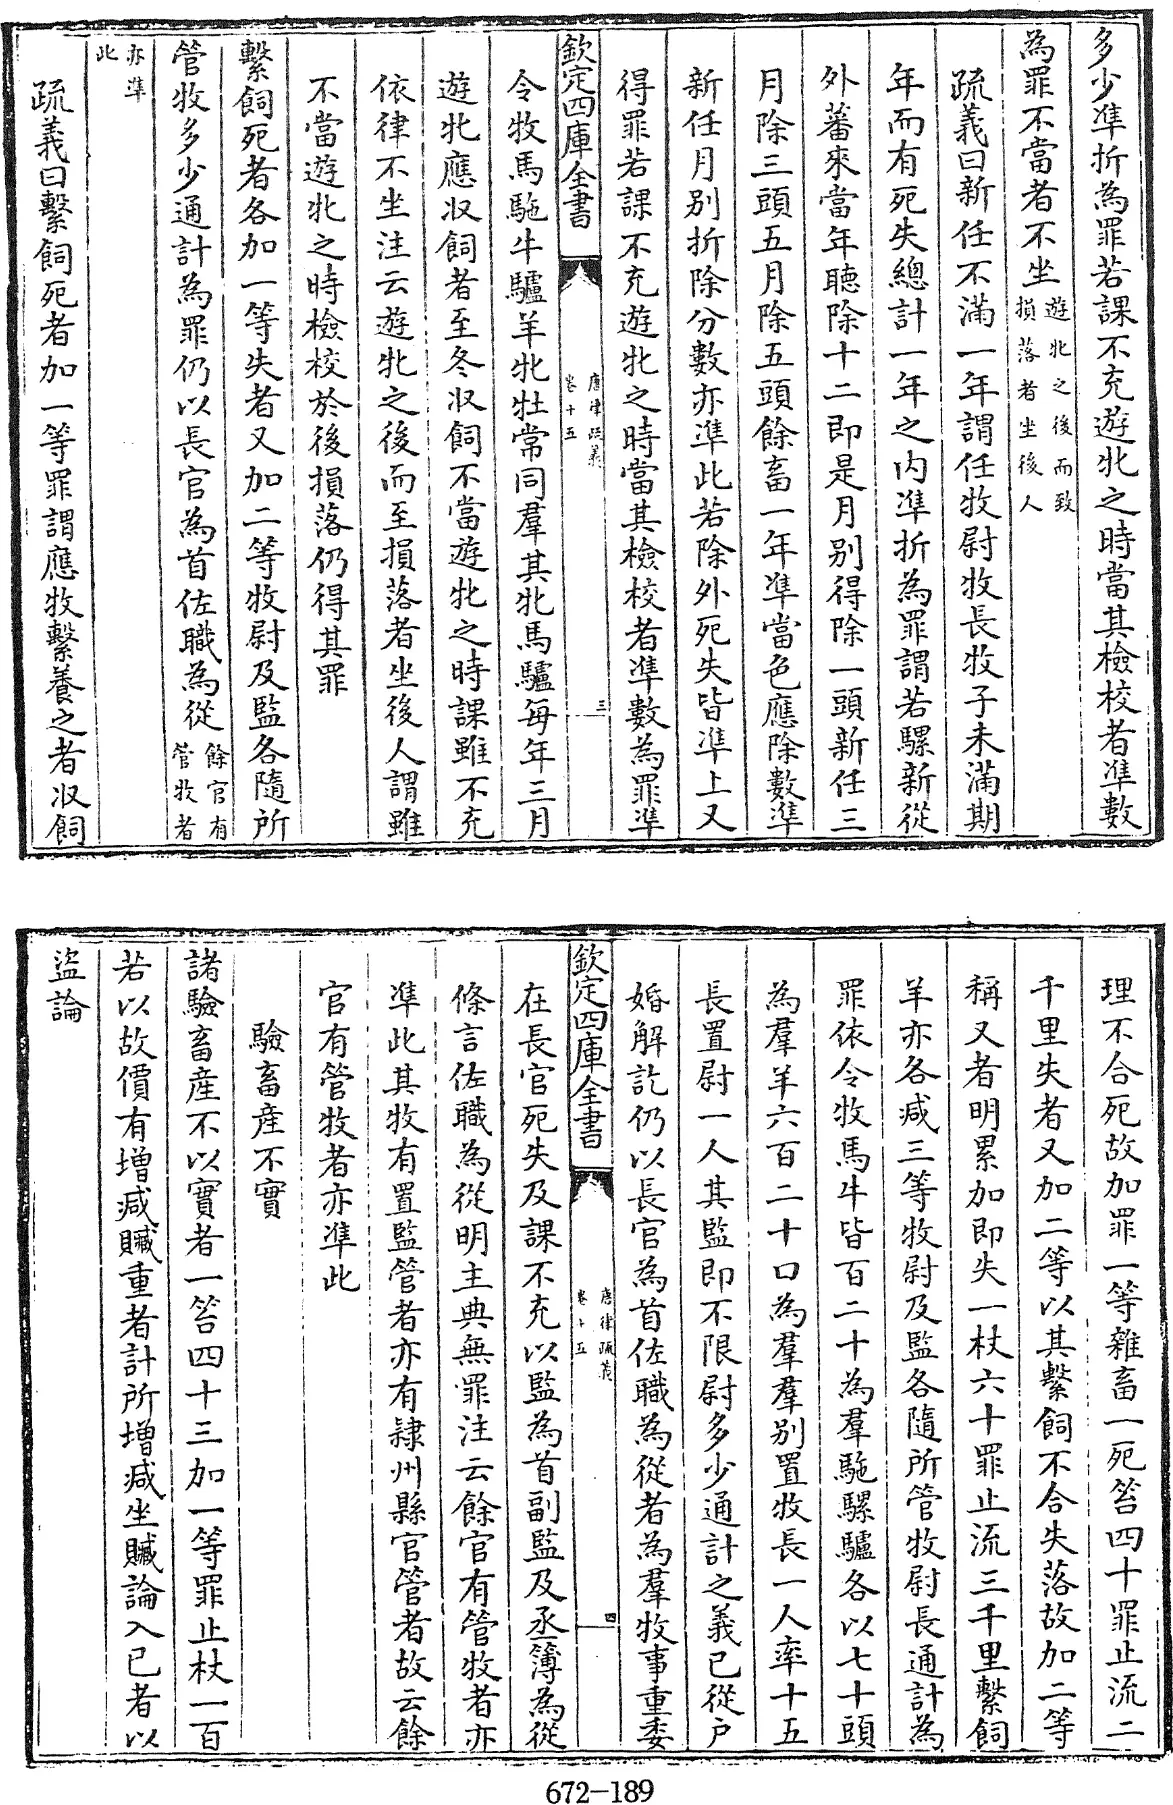 多少準折為罪若課不充遊牝之時當其檢校者準數
為罪不當者不坐遊牝之後而致
損落者坐後人
疏義曰新任不滿一年謂任牧尉牧長牧子未滿期
年而有死失總計一年之内準折為罪謂若騾新從
外蕃來當年聽除十二即是月别得除一頭新任三
月除三頭五月除五頭餘畜一年準當色應除數準
新任月别折除分數亦準此若除外死失皆準上又
得罪若課不充遊牝之時當其檢校者準數為罪準
欽定四庫全書
唐律疏義
卷十五
三
令牧馬駞牛驢羊牝牡常同羣其牝馬驢每年三月
遊牝應收飼者至冬收飼不當遊牝之時課雖不充
依律不坐注云遊牝之後而至損落者坐後人謂雖
不當遊牝之時檢校於後損落仍得其罪
繫飼死者各加一等失者又加二等牧尉及監各隨所
管牧多少通計為罪仍以長官為首佐職為從餘官有
管牧者
亦準
此
疏義曰繫飼死者加一等罪謂應牧繫養之者收飼
理不合死故加罪一等雜畜一死笞四十罪止流二
千里失者又加二等以其繫飼不合失落故加二等
稱又者明累加即失一杖六十罪止流三千里繫飼
羊亦各減三等牧尉及監各隨所管牧尉長通計為
罪依令牧馬牛皆百二十為羣駞騾驢各以七十頭
為羣羊六百二十口為羣羣别置牧長一人率十五
長置尉一人其監即不限尉多少通計之義已從户
婚解訖仍以長官為首佐職為從者為羣牧事重委
欽定四庫全書
唐律疏義
卷十五
四
在長官死失及課不充以監為首副監及丞簿為從
條言佐職為從明主典無罪注云餘官有管牧者亦
準此其牧有置監管者亦有隷州縣官管者故云餘
官有管牧者亦準此
驗畜産不實
諸驗畜産不以實者一笞四十三加一等罪止杖一百
若以故價有增減贓重者計所增減坐贓論入已者以
盜論
672-189